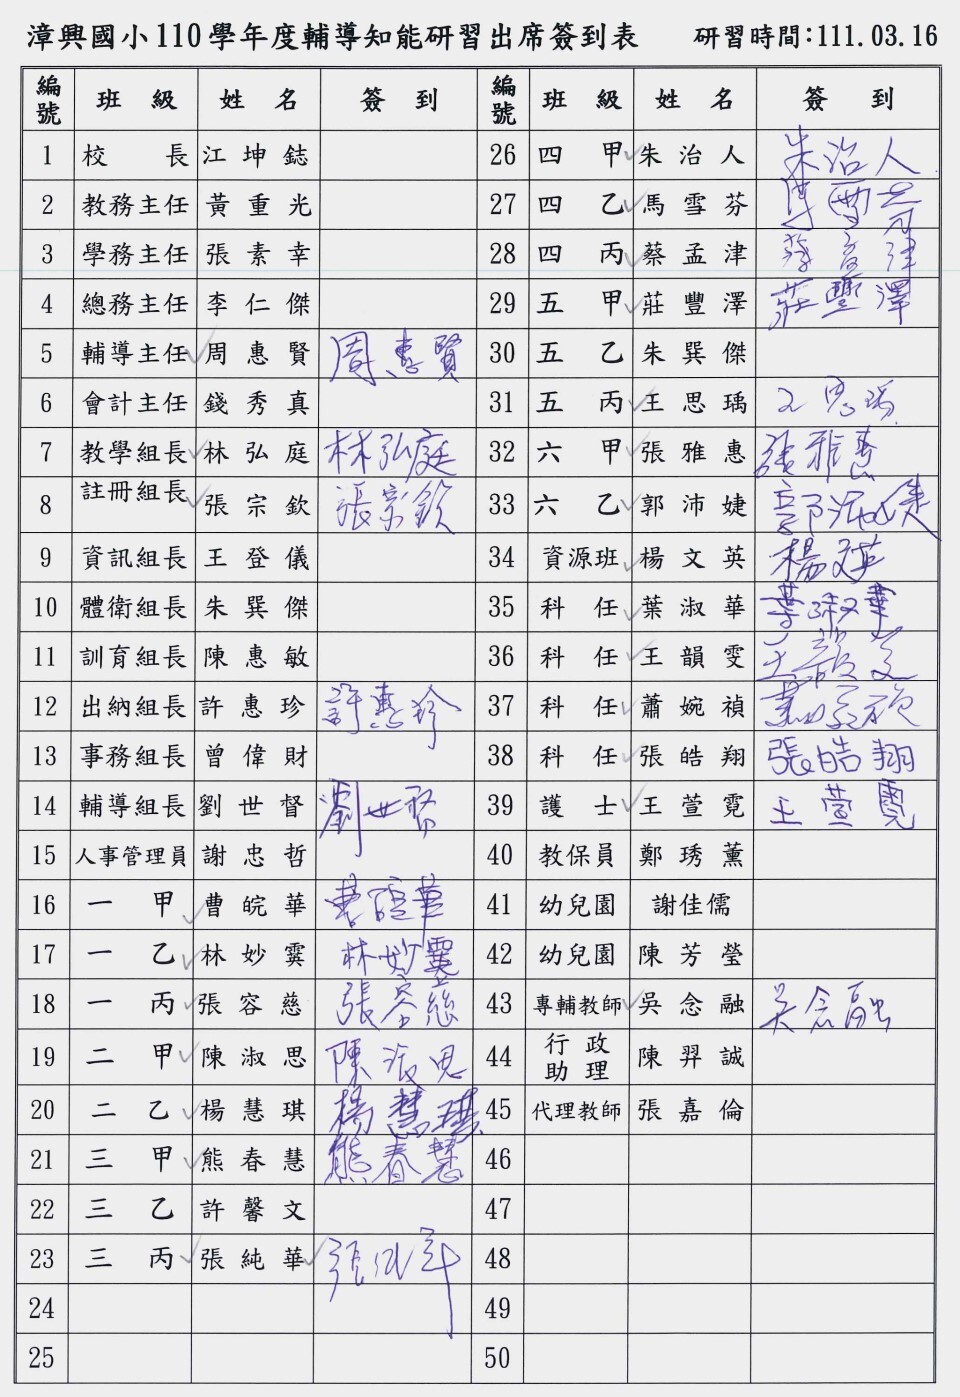 漳興國小110學年度輔導知能研習出席簽到表 研習時間:111.03.16
編號 班級 姓名 簽到 編號 班級 姓名 簽到
1 校長 江坤鋕 26 四甲 朱治人 朱治人
2 教務主任 黃重光 27 四乙 馬雪芬 馬雪芬
3 學務主任 張素幸 28 四丙 蔡孟津 蔡孟津
4 總務主任 李仁傑 29 五甲 莊豐澤 莊豐澤
5 輔導主任 周惠賢 周惠賢 30 五乙 朱巽傑
6 會計主任 錢秀真 31 五丙 王思瑀 王思瑀
7 教學組長 林弘庭 林弘庭 32 六甲 張雅惠 張雅惠
8 註冊組長 張宗欽 張宗欽 33 六乙 郭沛婕 郭沛婕
9 資訊組長 王登儀 34 資源班 楊文英 楊文英
10 體衛組長 朱巽傑 35 科任 葉淑華 葉淑華
11 訓育組長 陳惠敏 36 科任 王韻雯 王韻文
12 出納組長 許惠珍 許惠珍 37 科任 蕭婉禎 蕭婉禎
13 事務組長 曾偉財 38 科任 張皓翔 張皓翔
14 輔導組長 劉世督 劉世督 39 護士 王萱霓 王萱霓
15 人事管理員 謝忠哲 40 教保員 鄭琇薰
16 一甲 曹皖華 曹皖華 41 幼兒園 謝佳儒
17 一乙 林妙霙 林妙霙 42 幼兒園 陳芳瑩
18 一丙 張容慈 張容慈 43 專輔教師 吳念融 吳念融
19 二甲 陳淑思 陳淑思 44 行政助理 陳羿誠
20 二乙 楊慧琪 楊慧琪 45 代理教師 張嘉倫
21 三甲 熊春慧 熊春慧 46
22 三乙 許馨文 47
23 三丙 張純華 張純華 48
24 49
25 50